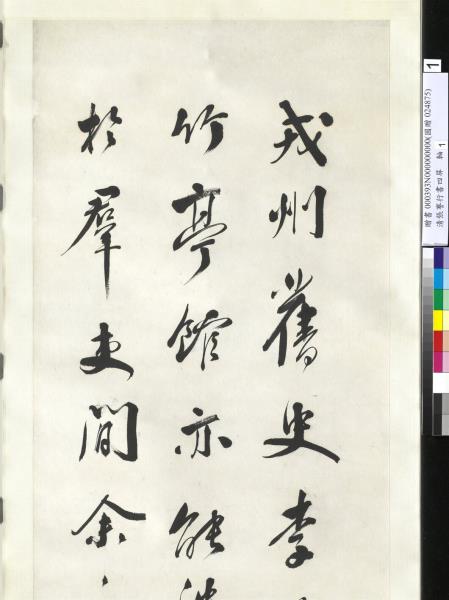 戎州舊史李
竹亭館亦能
於羣吏間余
贈書000393N000000000(國贈024875)
清張謇行書四屏 軸 1
1